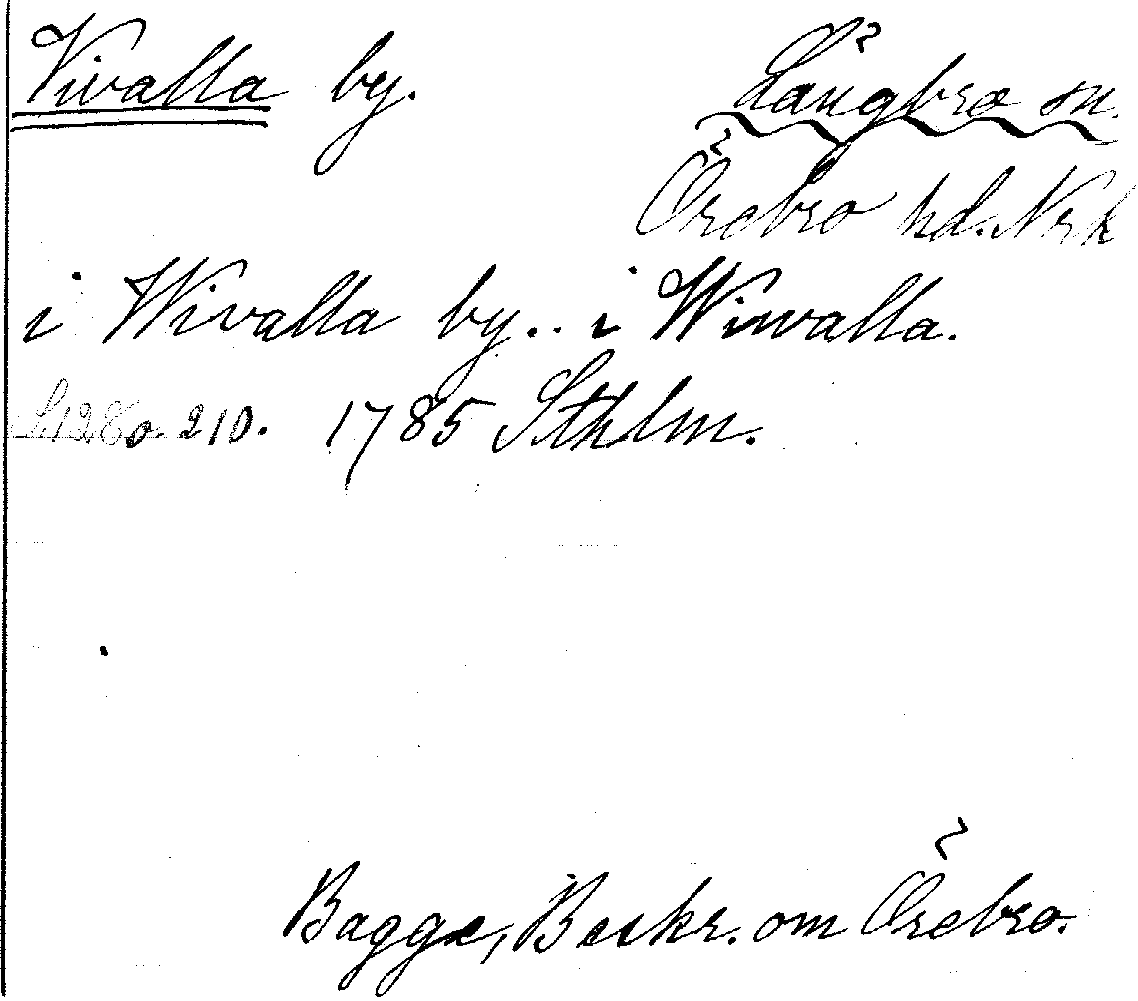 Vivalla by. Långbro sn.
Örebro hd. Nrk
i Wivalla by.. i Wiwalla.
S. 128 o. 210. 1785 Sthlm.
Bagge, Beskr. om Örebro.